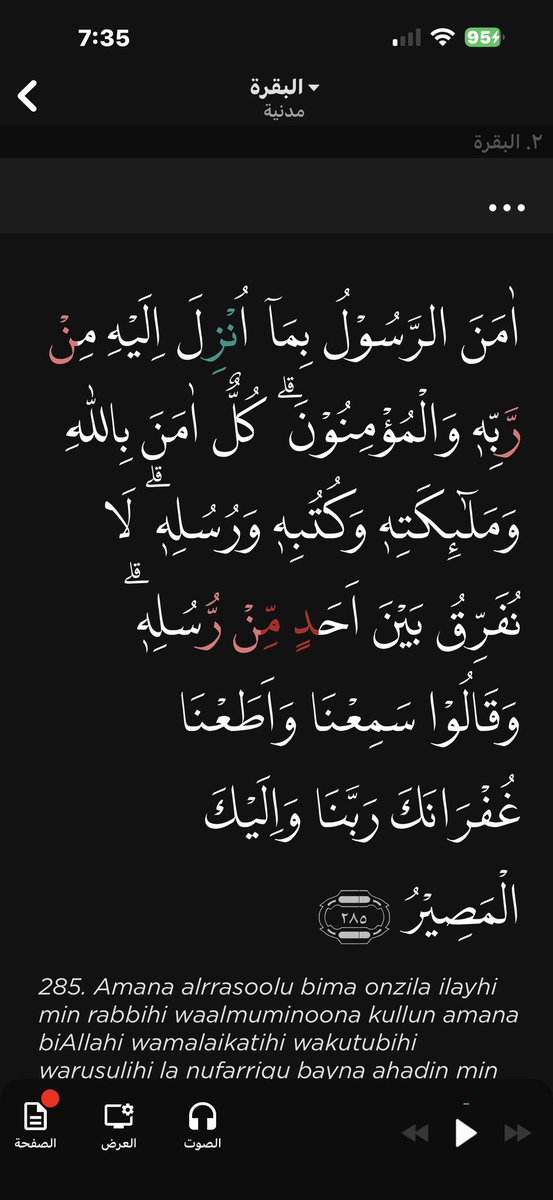 7:35
95
البقرة
مدنية
٢. البقرة
اٰمَنَ الرَّسُوْلُ بِمَاۤ اُنْزِلَ اِلَيْهِ مِنْ
رَّبِّهٖ وَالْمُؤْمِنُوْنَ ۗ كُلٌّ اٰمَنَ بِاللّٰهِ
وَمَلٰٓئِكَتِهٖ وَكُتُبِهٖ وَرُسُلِهٖ ۗ لَا
نُفَرِّقُ بَيْنَ اَحَدٍ مِّنْ رُّسُلِهٖ ۗ
وَقَالُوْا سَمِعْنَا وَاَطَعْنَا
غُفْرَانَكَ رَبَّنَا وَاِلَيْكَ
الْمَصِيْرُ ٢٨٥
285. Amana alrrasoolu bima onzila ilayhi
min rabbihi waalmuminoona kullun amana
biAllahi wamalaikatihi wakutubihi
warusulihi la nufarriqu bayna ahadin min
الصفحة
العرض
الصوت